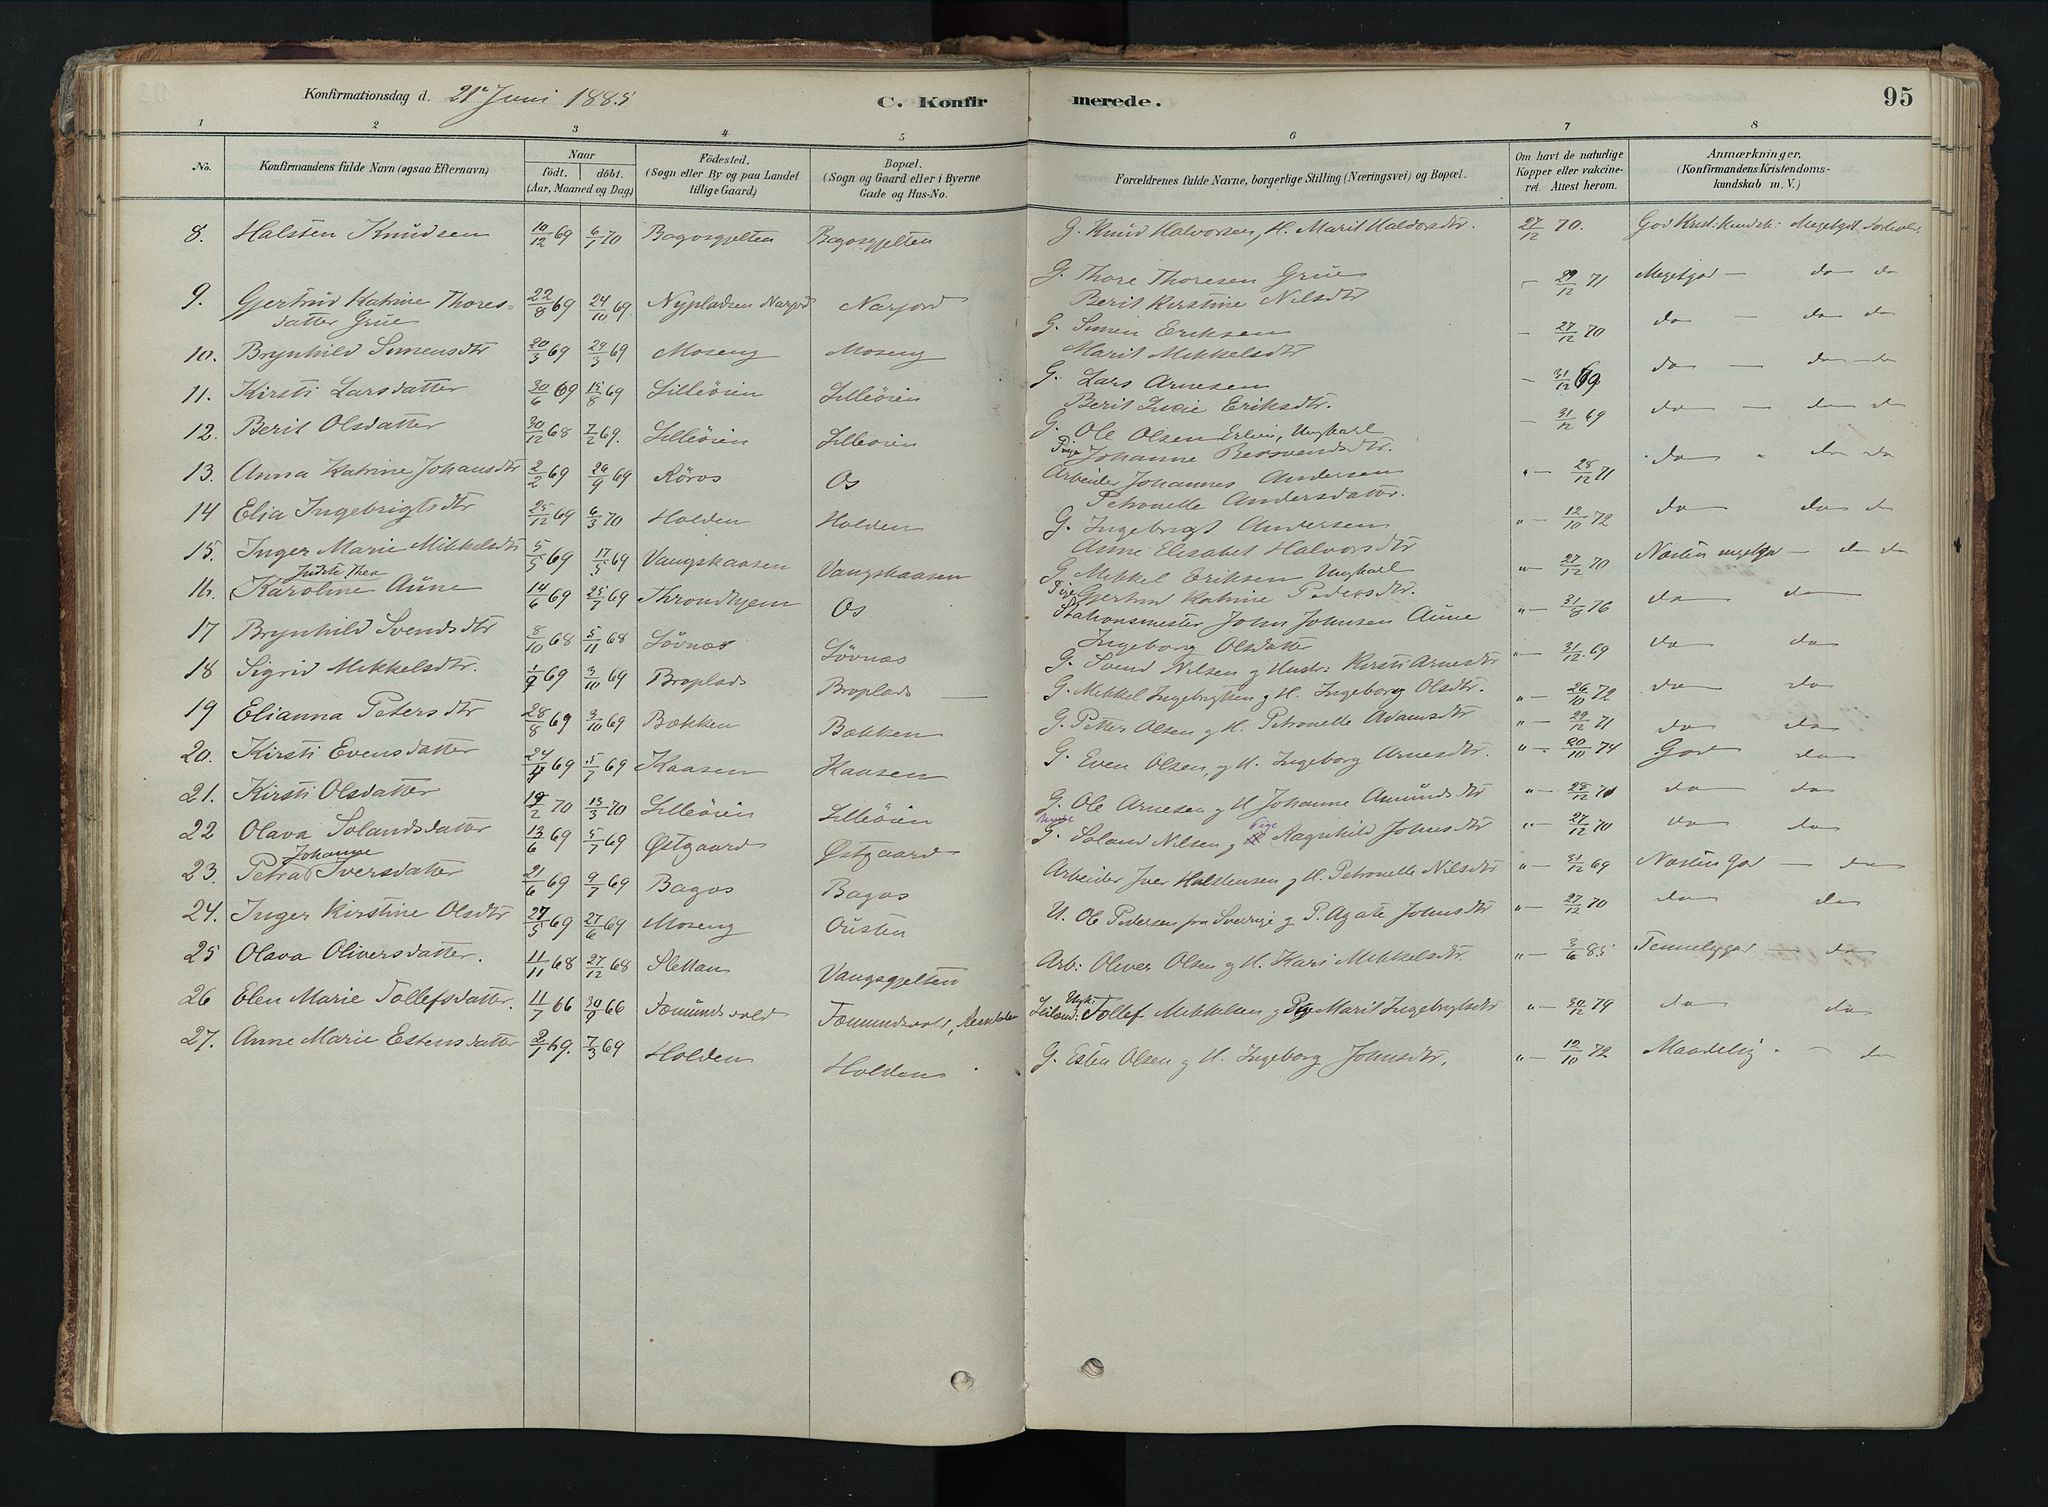 Konfirmationsdag d. 21de Juni 1885 C. Konfirmerede. 95
1 2 3 4 5 6 7 8
No. Konfirmandens fulde Navn (ogsaa Efternavn) Naar født. døbt. (Aar, Maaned og Dag) Födested. (Sogn eller By og paa Landet tillige Gaard) Bopæl. (Sogn og Gaard eller i Byerne Gade og Hus-No. Forældrenes fulde Navne, borgerlige Stilling (Næringsvei) og Bopæl. Om havt de naturlige Kopper eller vakcineret. Attest herom. Anmærkninger. (Konfirmandens Kristendomskundskab m. V.)
8. Halsten Knudsen 10/12 69 6/1 70 Bagosgjelten Bagosgjelten G. Knud Halvorsen, H. Marit Haldorsdtr. 27/12 70. God Krist. kundsk: Meget godt Forhold
9. Gjertrud Katrine Thoresdatter Grue 22/8 69 24/10 69. Nypladsen Narjord Narjord G. Thore Thoresen Grue Berit Kirstine Nilsdtr - 29/12 71 Megetgod - do do
10. Brynhild Simensdtr 20/3 69 29/3 69 Moseng Moseng G. Simen Eriksen Marit Mikkelsdtr - 27/12 70 do - do do
11. Kirsti Larsdatter 30/6 69 15/8 69 Lilleöien Lilleöien G. Lars Arnesen Berit Lucie Eriksdtr. - 31/12 69 do - do - do
12. Berit Olsdatter 30/12 68 7/2 69. Lilleöien Lilleöien G. Ole Olsen Erlien, Ungkarl Pige Johanne Bersvendsdtr. - 31/12 69 do - do do
13. Anna Katrine Johansdtr 2/2 69 26/9 69 Röros Os Arbeider Johannes Andersen Petronelle Andersdatter. " - 28/12 71 do " do do
14 Elia Ingebrigtsdtr 25/12 69 6/3 70 Holden Holden G. Ingebrigt Andersen Anne Elisabet Halvorsdtr " - 12/10 72 do do do
15. Inger Marie Mikkelsdtr 5/5 69 17/5 69 Vangskaasen Vangskaasen G Mikkel Eriksen Ungkarl Pige Gjertrud Katrine Pedersdtr. " - 27/12 70 Næsten megetgod - do do
16. Karoline Judite Thea Aune 14/6 69 25/7 69 Throndhjem Os Stationsmester John Johnsen Aune Ingeborg Olsdatter " - 31/8 76 do do
17 Brynhild Svendsdtr 8/10 68 5/11 68 Sövnas Sövnas G. Svend Nilsen g Hustr: Kirsti Arnesdtr " - 31/12 69 do do
18 Sigrid Mikkelsdtr. 1/9 69 3/10 69 Broplads Broplads - G. Mikkel Ingebrigtsen g H. Ingeborg Olsdtr. " - 26/10 72 do do
19 Elianna Petersdtr 28/8 69 3/10 69 Bækken Bækken G. Petter Olsen g H. Petronelle Adamsdtr " - 29/12 71 do do
20. Kirsti Evensdatter 24/4 69 5/7 69 Kaasen Kaasen G. Even Olsen, g H. Ingeborg Arnesdtr. " - 20/10 74 God do
21. Kirsti Olsdatter 12/2 70 13/3 70 Lilleöien Lilleöien G. Ole Arnesen g H Johanne Amundsdtr " - 28/12 71 do do
22 Olava Solandsdatter 13/6 69 5/7 69 Østgaard Østgaard G. Soland Nilsen g Pige Ragnhild Johnsdtr " - 27/12 70 do do
23. Petra Johanne Iversdatter 21/6 69 9/7 69 Bagos Bagos Arbeider Iver Halstensen g H. Petronelle Nilsdtr " - 31/12 69 Næsten God - do
24. Inger Kirstine Olsdtr 27/5 69 27/6 69 Moseng Ousten U. Ole Pedersen fra Sverrige g P. Agate Johnsdtr " - 27/12 70 do do
25 Olava Oliversdatter. 11/11 68 27/12 68 Slettan Vangsgjelten Arb: Oliver Olsen g H. Kari Mikkelsdtr. " - 3/6 85 Temmeliggod - do
26 Elen Marie Tollefsdatter. 11/7 66 30/9 66 Fæmundsvold Fæmundsvold, Ungk: Tollef Mikkelsen g Pige Marit Ingebrigtsdtr " - 30/12 79 do do
27. Anne Marie Estensdatter 2/1 69. 7/3 69 Holden Holden G. Esten Olsen g H. Ingeborg Johnsdtr, " - 12/10 72 Maadelig. - do